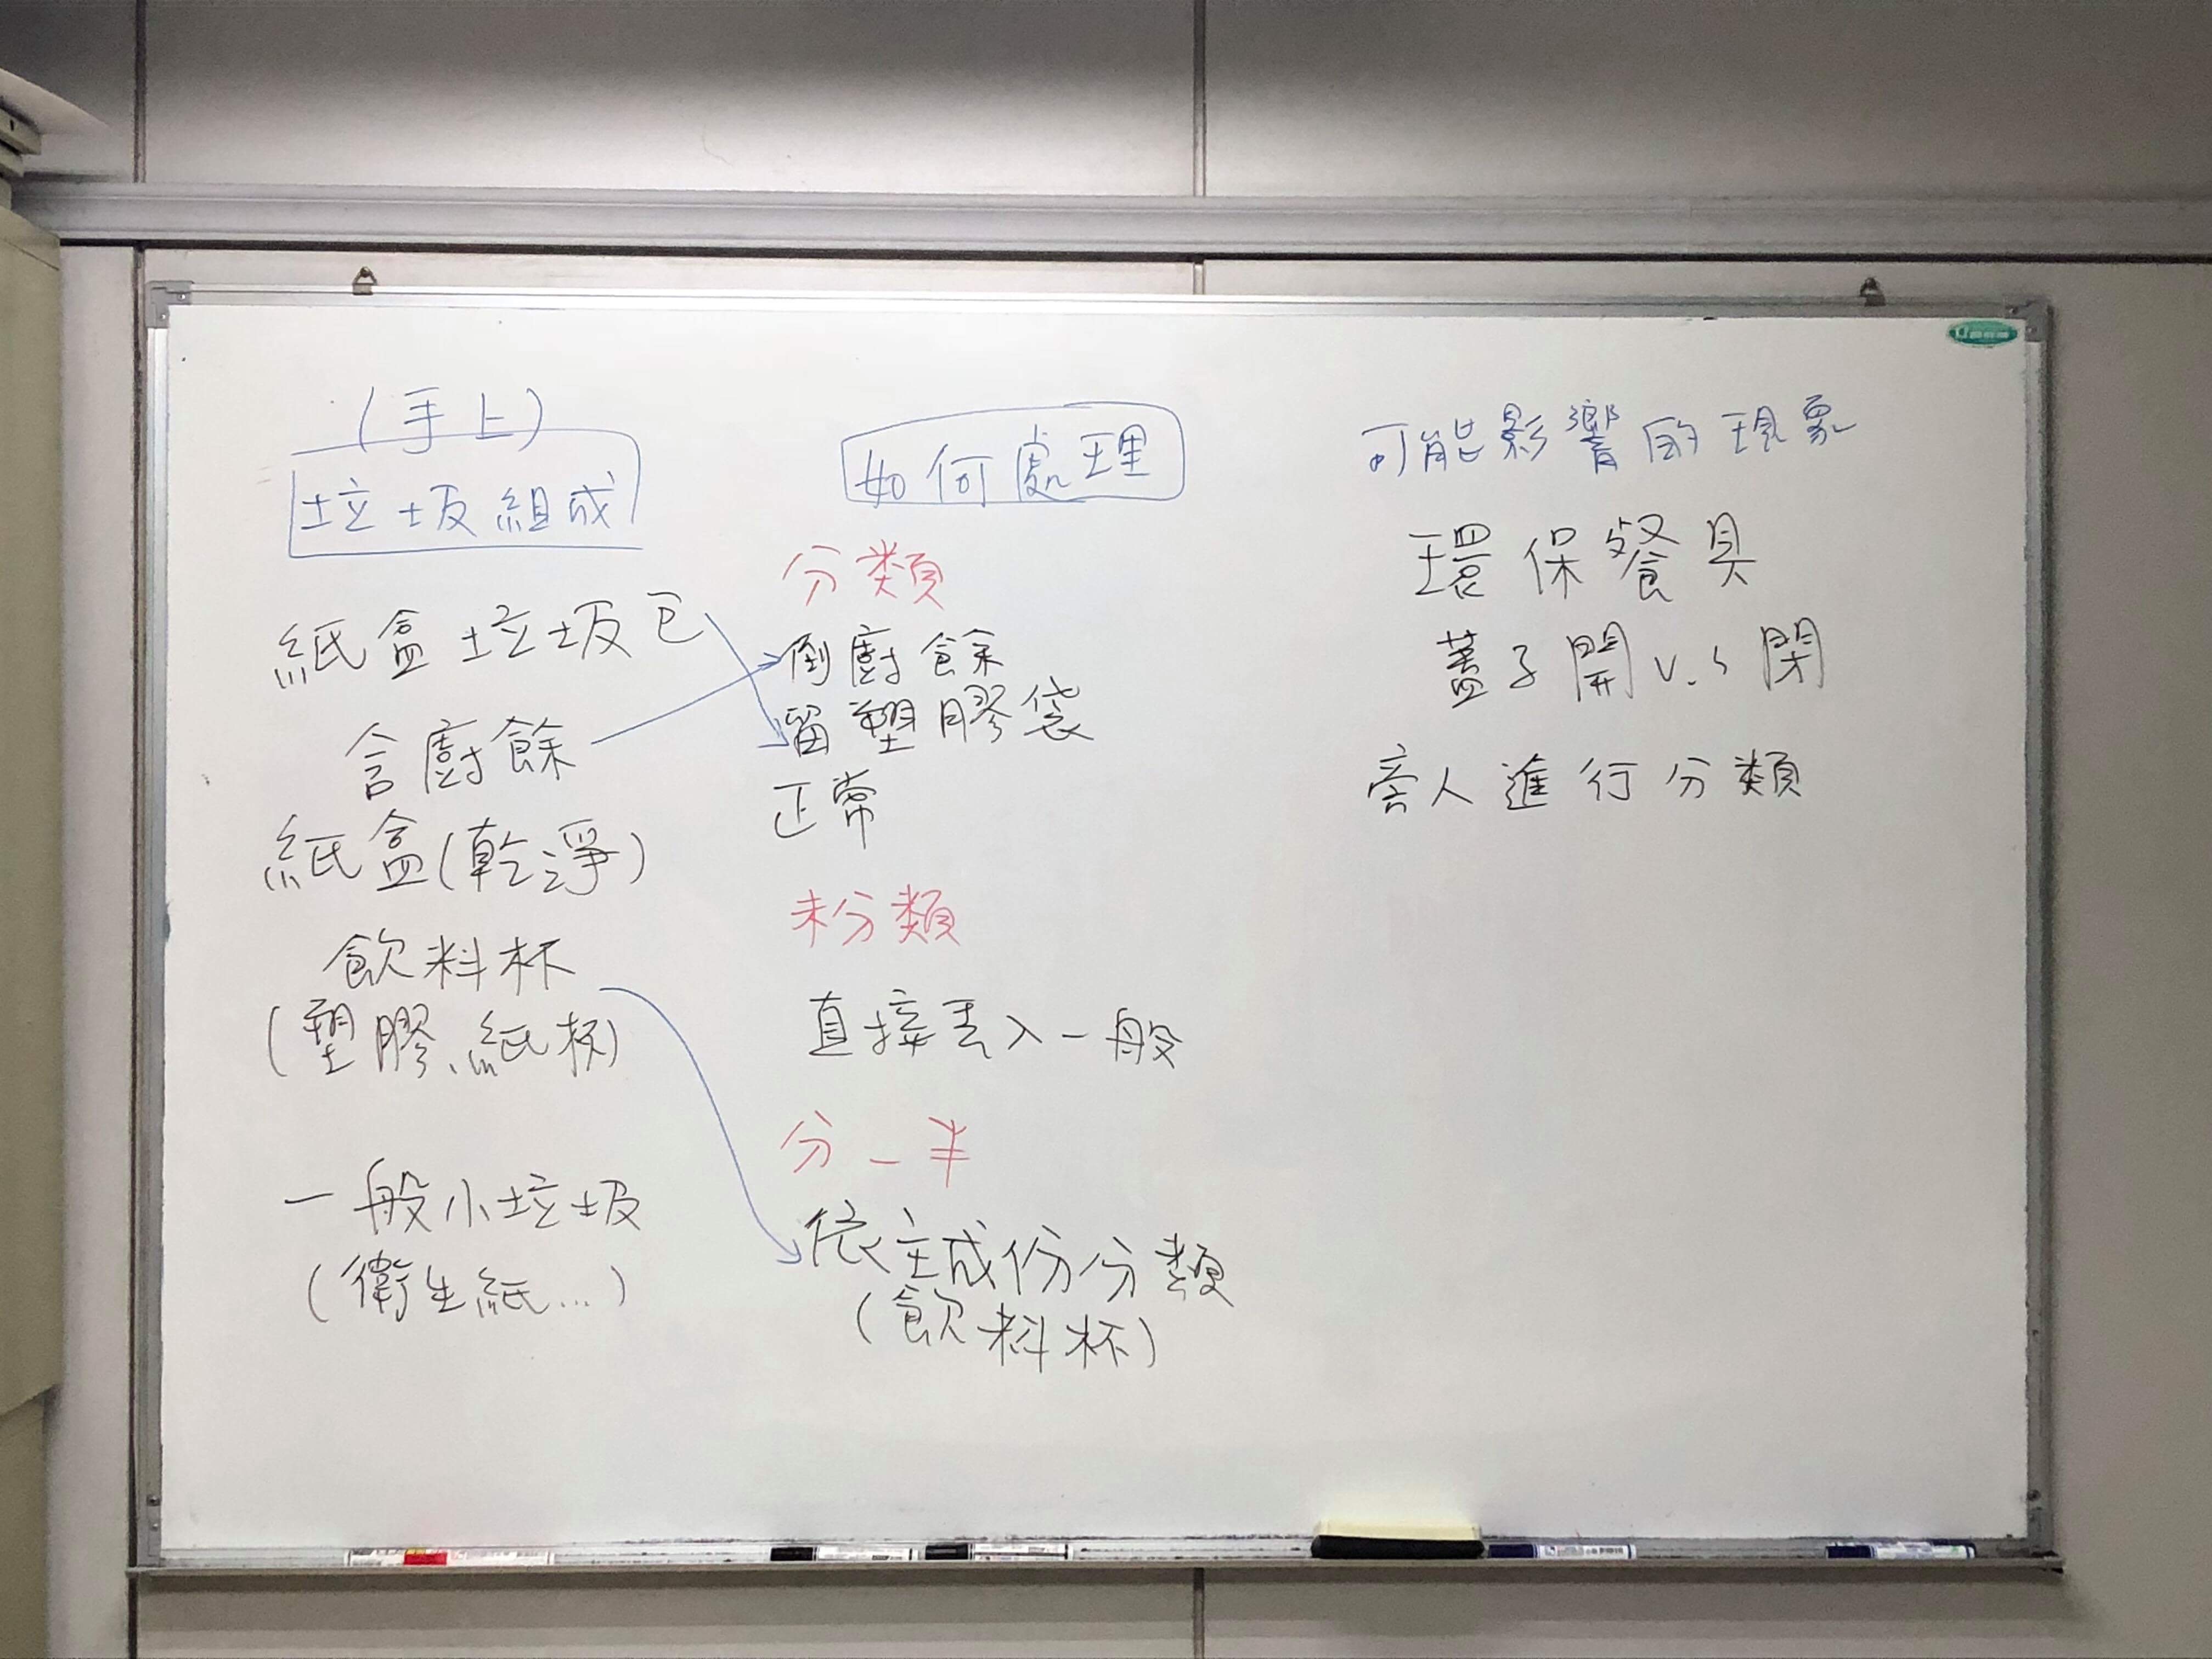 (手上)
垃圾組成
紙盒垃圾包
含廚餘
紙盒(乾淨)
飲料杯
(塑膠、紙杯)
一般小垃圾
(衛生紙...)
如何處理
分類
倒廚餘
留塑膠袋
正常
未分類
直接丟入一般
分一半
依主成份分類
(飲料杯)
可能影響的現象
環保餐具
蓋子開 v.s 閉
旁人進行分類